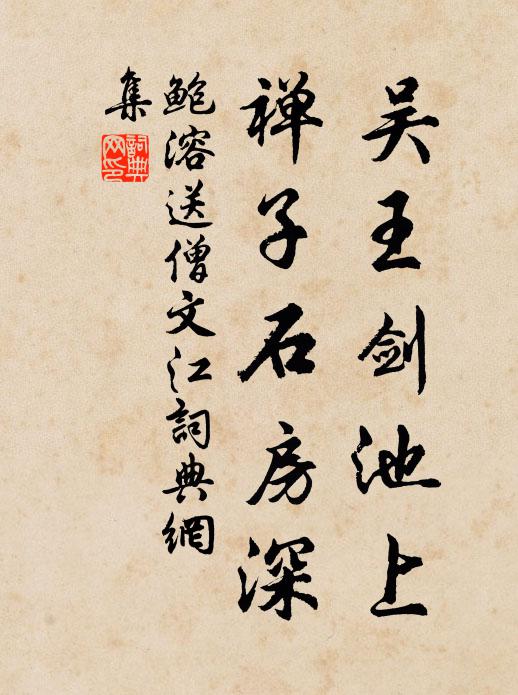 吴王剑池上
禅子石房深
鲍溶送僧文江詞典網
集
詞典
网印